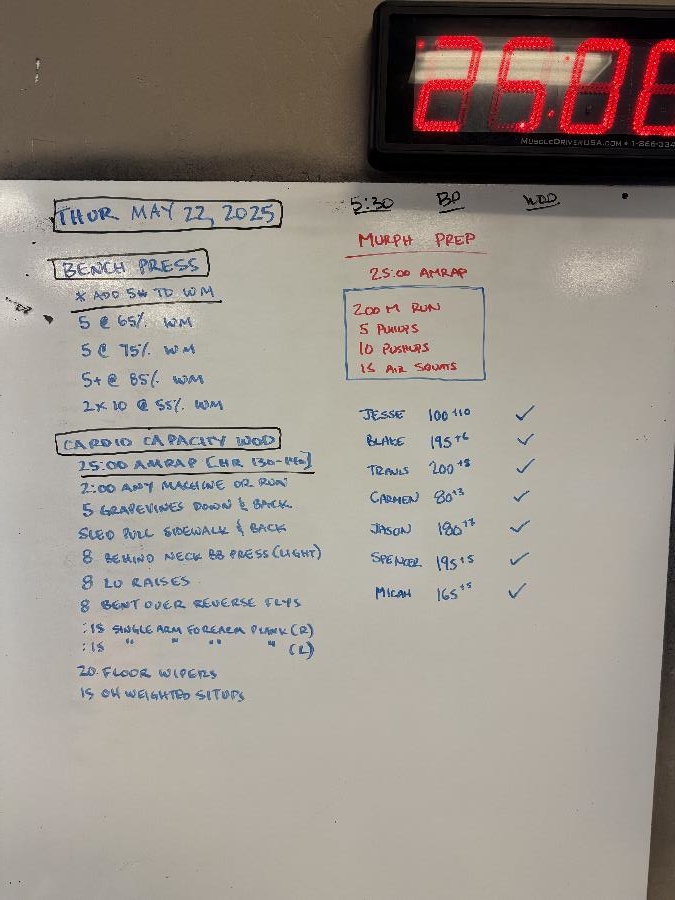 25:0
MUSCLEDRIVERUSA.COM • 1-866-334
THUR MAY 22, 2025
BENCH PRESS
* ADD 5# TO WM
5 @ 65% WM
5 @ 75% WM
5+ @ 85% WM
2x10 @ 55% WM
CARDIO CAPACITY WOD
25:00 AMRAP [HR 130-140]
2:00 ANY MACHINE OR RUN
5 GRAPEVINES DOWN & BACK
SLED PULL SIDEWALK & BACK
8 BEHIND NECK BB PRESS (LIGHT)
8 LU RAISES
8 BENT OVER REVERSE FLYS
:15 SINGLE ARM FOREARM PLANK (R)
:15 " " " " (L)
20 FLOOR WIPERS
15 OH WEIGHTED SITUPS
5:30 BP WOD
MURPH PREP
25:00 AMRAP
200 M RUN
5 PULLUPS
10 PUSHUPS
15 AIR SQUATS
JESSE 100+10 ✓
BLAKE 195+6 ✓
TRAVIS 200+8 ✓
CARMEN 80+3 ✓
JASON 180+7 ✓
SPENCER 195+5 ✓
MICAH 165+5 ✓